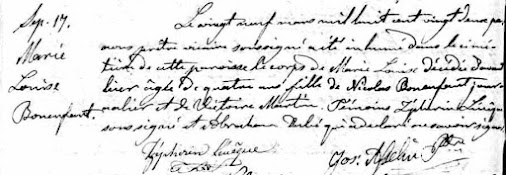 Sep. 17.
Marie
Louise
Bonenfant.
Le vingt neuf mars mil huit cent vingt deux par
nous prêtre vicaire soussigné a été inhumé dans le cime
tière de cette paroisse le corps de Marie Louise décédée
âgée de quatre ans fille de Nicolas Bonenfant jour
nalier et de Victoire Martin. Témoins Zéphirin Levêque
soussigné et Abraham qui a déclaré ne savoir signer.
Zéphirin Levêque
Jos. Asselin Ptre